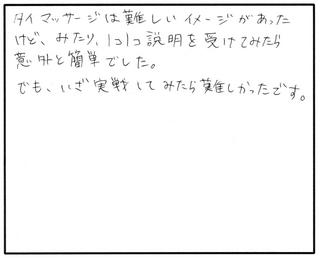 タイマッサージは難しいイメージがあった
けど、みたり、1コ1コ説明を受けてみたら
意外と簡単でした。
でも、いざ実戦してみたら難しかったです。